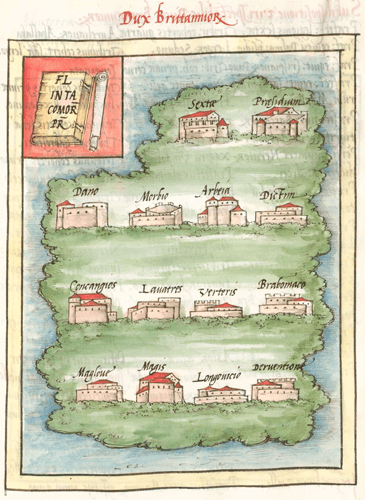 Dux Brittannior
FL
INTA
COMOR
PR
Sextæ Præsidium
Dano Morbio Arbeia Dictim
Concangios Lauatres Verteris Brabomaco
Magloue Magis Longouicio Deruentione